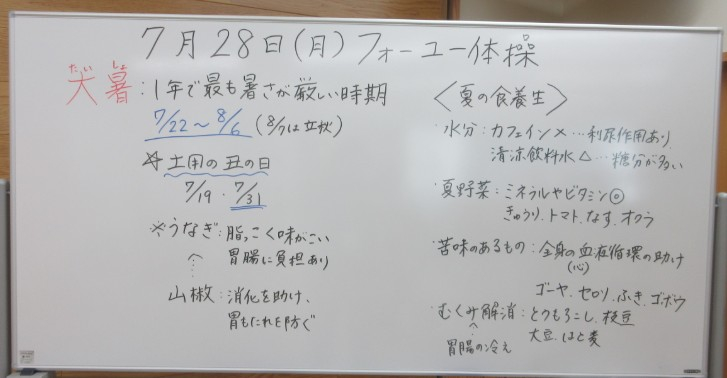 7月28日(月)フォーユー体操
たい しょ
大暑:1年で最も暑さが厳しい時期
7/22～8/6 (8/7は立秋)
☆土用の丑の日
7/19・7/31
※うなぎ:脂っこく味がこい
胃腸に負担あり
山椒:消化を助け、
胃もたれを防ぐ
〈夏の食養生〉
水分:カフェイン×…利尿作用あり
清涼飲料水△…糖分が多い
夏野菜:ミネラルやビタミン◎
きゅうり、トマト、なす、オクラ
苦味のあるもの:全身の血液循環の助け
(心)
ゴーヤ、セロリ、ふき、ゴボウ
むくみ解消:とうもろこし、枝豆
大豆、はと麦
胃腸の冷え